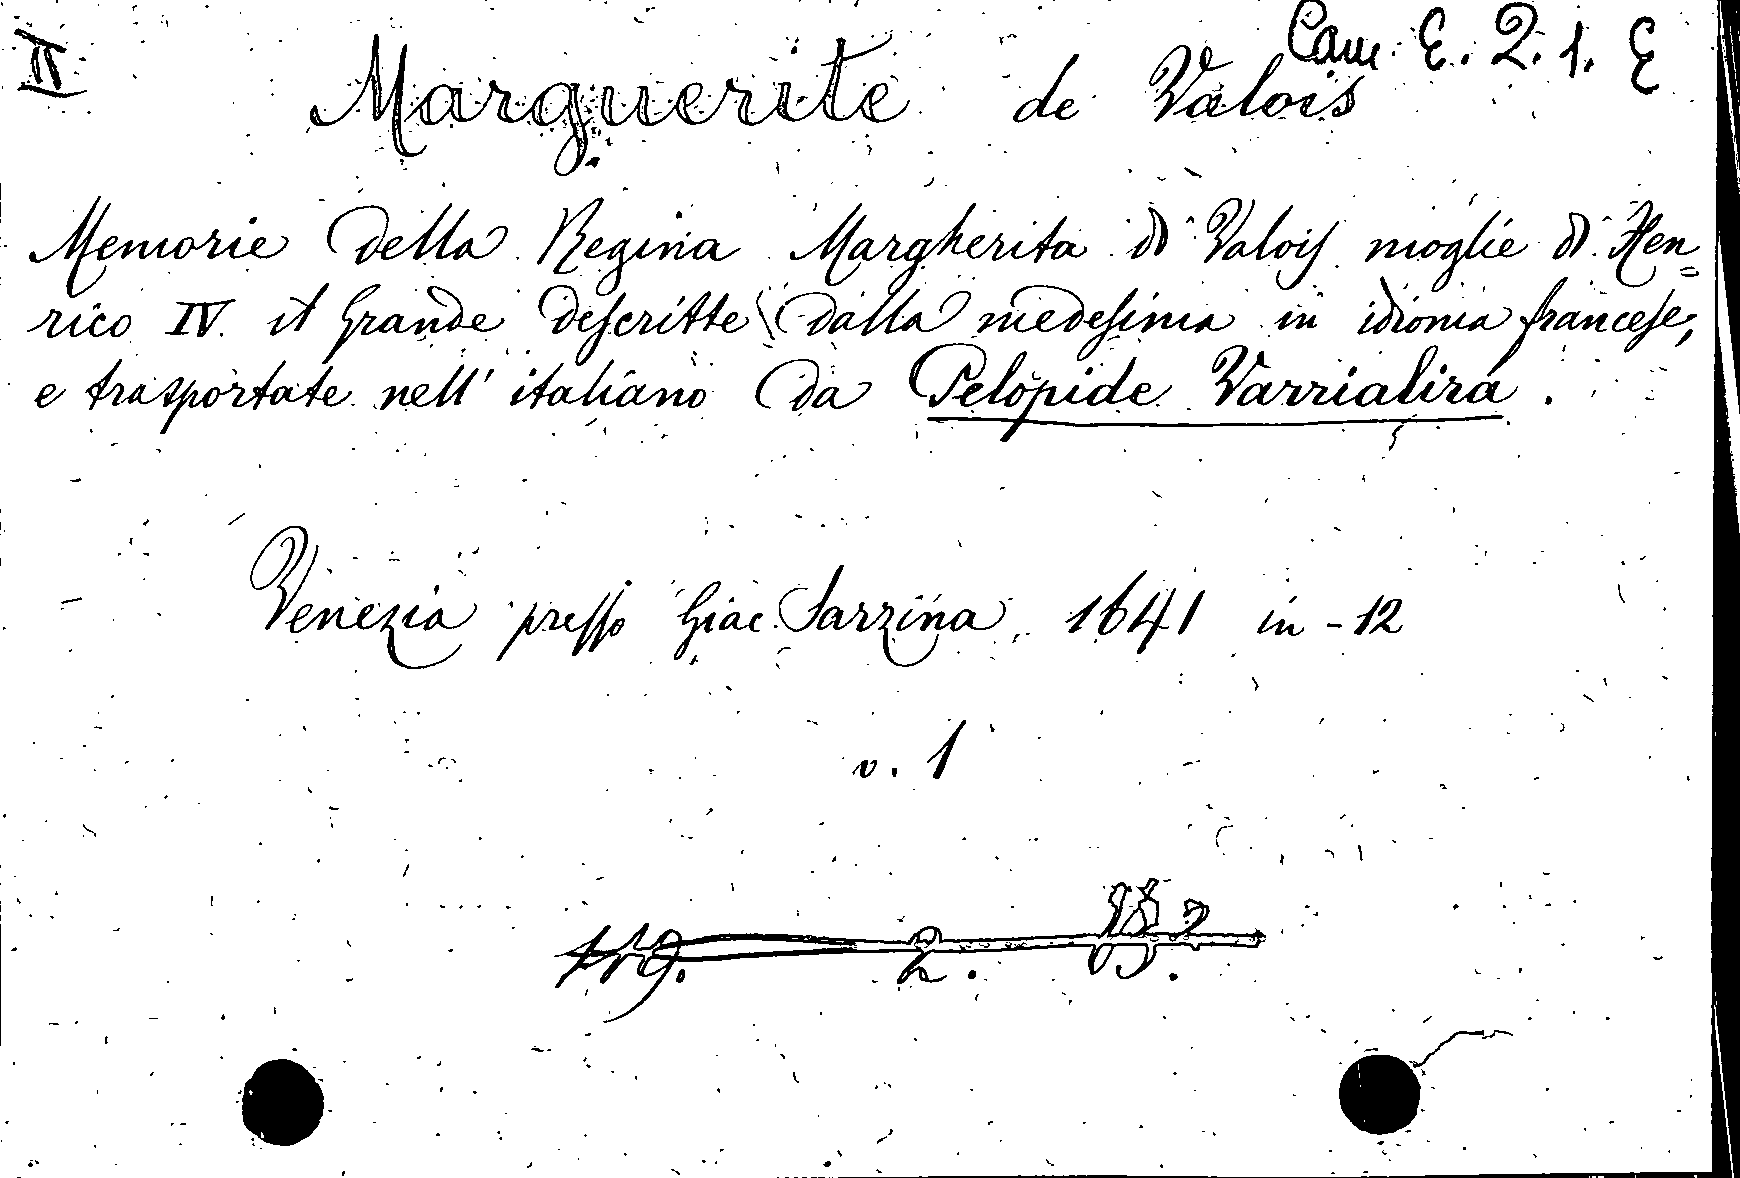 II
Cam. E. 2. 1. E
Marguerite de Valois
Memorie della Regina Margherita di Valois moglie di Hen=
rico IV. il Grande descritte dalla medesima in idioma francese,
e trasportate nell' italiano da Pelopide Varrialira.
Venezia presso Giac. Sarzina, 1641 in-12
v. 1